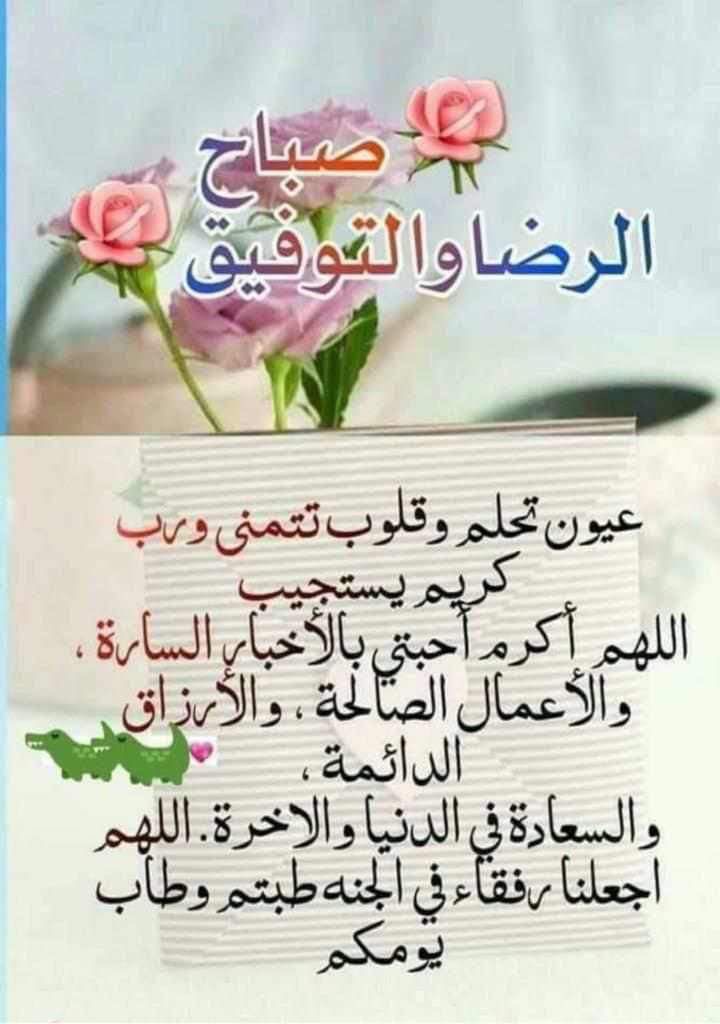 صباح
الرضا والتوفيق
عيون تحلم وقلوب تتمنى ورب
كريم يستجيب
اللهم أكرم أحبتي بالأخبار السارة ،
والأعمال الصالحة ، والأرزاق
الدائمة ،
والسعادة في الدنيا والاخرة. اللهم
اجعلنا رفقاء في الجنه طبتم وطاب
يومكم